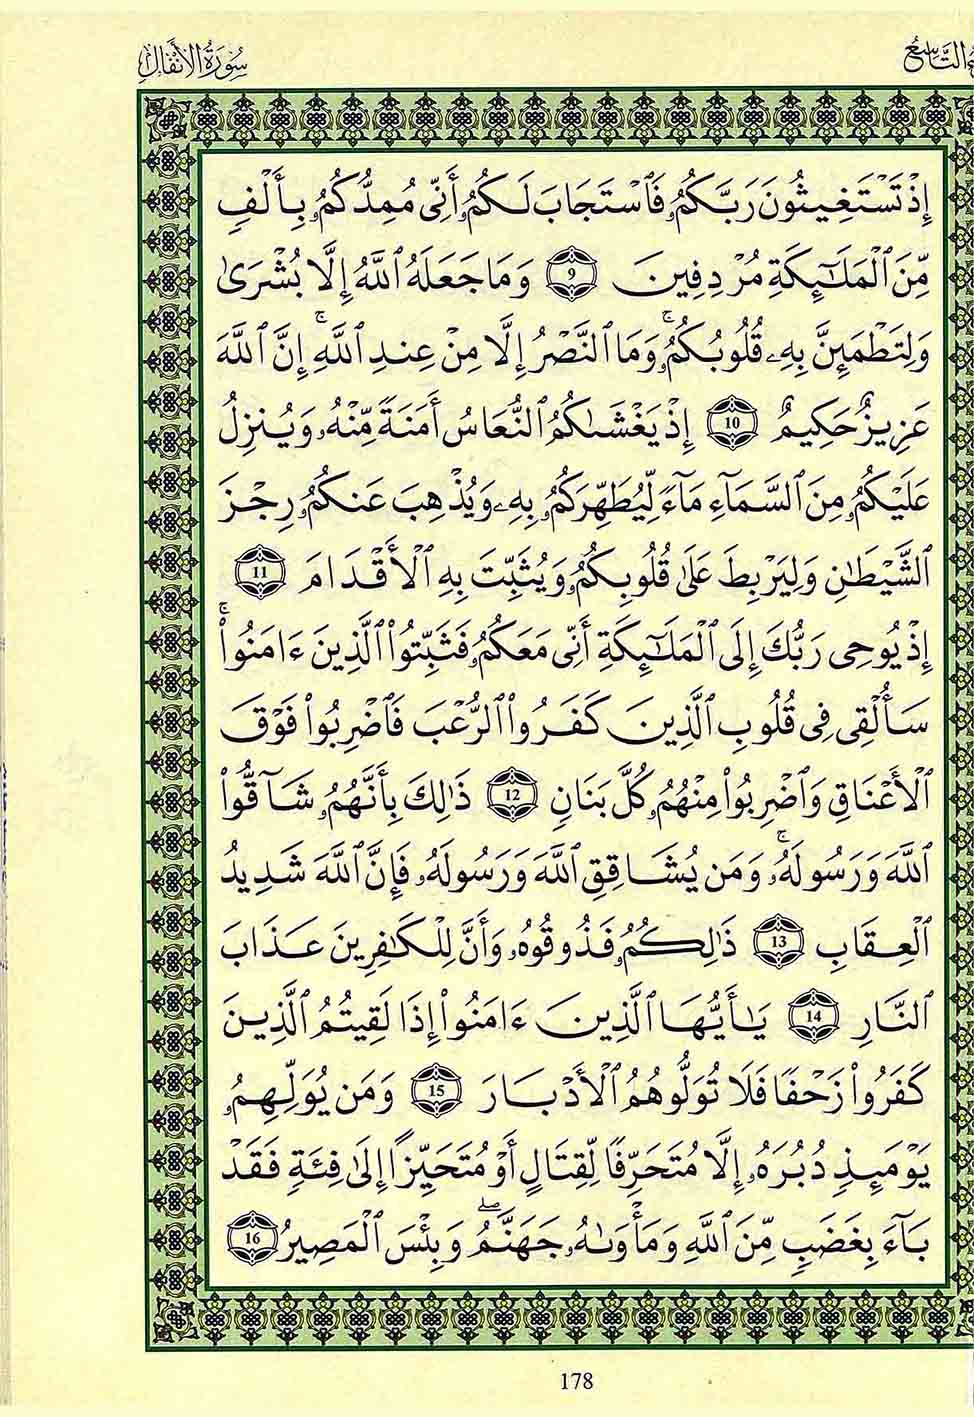 سُورَةُ الأَنفَالِ
التَّاسِعُ
إِذْ تَسْتَغِيثُونَ رَبَّكُمُۥ فَٱسْتَجَابَ لَكُمُۥٓ أَنِّى مُمِدُّكُمُۥ بِأَلْفٍ
مِّنَ ٱلْمَلَٰٓئِكَةِ مُرْدِفِينَ 9 وَمَا جَعَلَهُ ٱللَّهُ إِلَّا بُشْرَىٰ
وَلِتَطْمَئِنَّ بِهِۦ قُلُوبُكُمُۥۚ وَمَا ٱلنَّصْرُ إِلَّا مِنْ عِندِ ٱللَّهِۚ إِنَّ ٱللَّهَ
عَزِيزٌ حَكِيمٌ 10 إِذْ يَغْشَىٰكُمُ ٱلنُّعَاسُ أَمَنَةً مِّنْهُۥ وَيُنزِلُ
عَلَيْكُمُۥ مِنَ ٱلسَّمَآءِ مَآءً لِّيُطَهِّرَكُمُۥ بِهِۦ وَيُذْهِبَ عَنكُمُۥ رِجْزَ
ٱلشَّيْطَٰنِ وَلِيَرْبِطَ عَلَىٰ قُلُوبِكُمُۥ وَيُثَبِّتَ بِهِ ٱلْأَقْدَامَ 11
إِذْ يُوحِى رَبُّكَ إِلَى ٱلْمَلَٰٓئِكَةِ أَنِّى مَعَكُمُۥ فَثَبِّتُوا۟ ٱلَّذِينَ ءَامَنُوا۟ۚ
سَأُلْقِى فِى قُلُوبِ ٱلَّذِينَ كَفَرُوا۟ ٱلرُّعْبَ فَٱضْرِبُوا۟ فَوْقَ
ٱلْأَعْنَاقِ وَٱضْرِبُوا۟ مِنْهُمُۥ كُلَّ بَنَانٍ 12 ذَٰلِكَ بِأَنَّهُمُۥ شَآقُّوا۟
ٱللَّهَ وَرَسُولَهُۥۚ وَمَن يُشَاقِقِ ٱللَّهَ وَرَسُولَهُۥ فَإِنَّ ٱللَّهَ شَدِيدُ
ٱلْعِقَابِ 13 ذَٰلِكُمُۥ فَذُوقُوهُۥ وَأَنَّ لِلْكَٰفِرِينَ عَذَابَ
ٱلنَّارِ 14 يَٰٓأَيُّهَا ٱلَّذِينَ ءَامَنُوٓا۟ إِذَا لَقِيتُمُ ٱلَّذِينَ
كَفَرُوا۟ زَحْفًا فَلَا تُوَلُّوهُمُ ٱلْأَدْبَارَ 15 وَمَن يُوَلِّهِمُۥ
يَوْمَئِذٍ دُبُرَهُۥٓ إِلَّا مُتَحَرِّفًا لِّقِتَالٍ أَوْ مُتَحَيِّزًا إِلَىٰ فِئَةٍ فَقَدْ
بَآءَ بِغَضَبٍ مِّنَ ٱللَّهِ وَمَأْوَىٰهُۥ جَهَنَّمُۖ وَبِئْسَ ٱلْمَصِيرُ 16
178